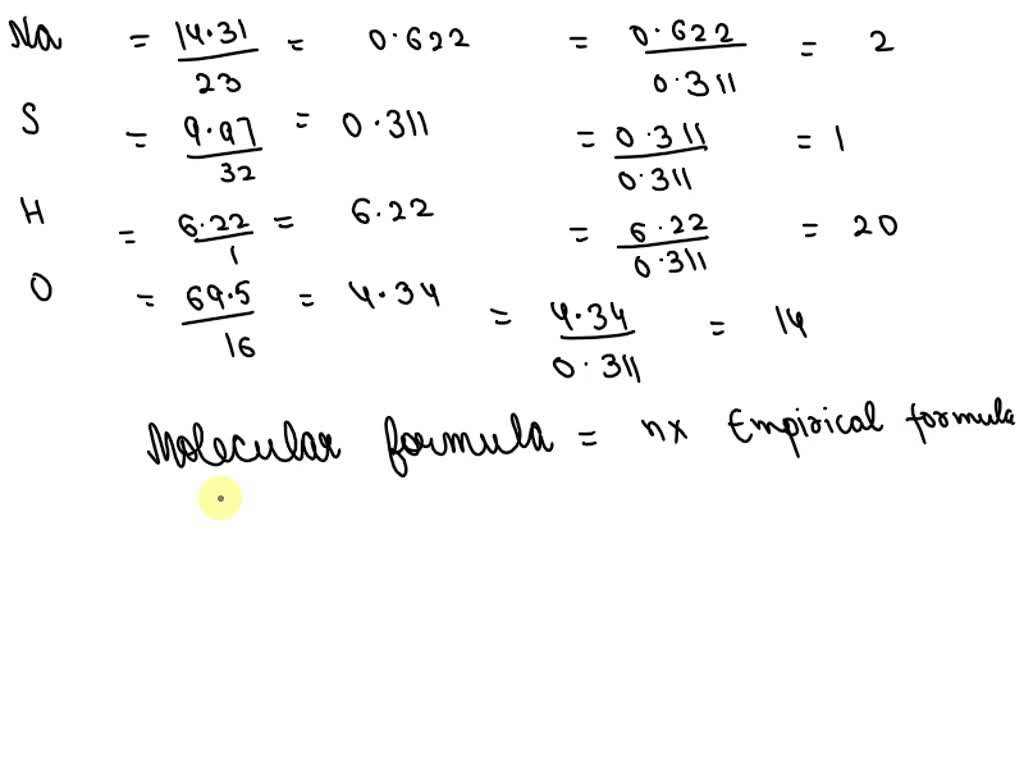 Na = 14.31/23 = 0.622 = 0.622/0.311 = 2
S = 9.97/32 = 0.311 = 0.311/0.311 = 1
H = 6.22/1 = 6.22 = 6.22/0.311 = 20
O = 69.5/16 = 4.34 = 4.34/0.311 = 14
Molecular formula = nx Empirical formula